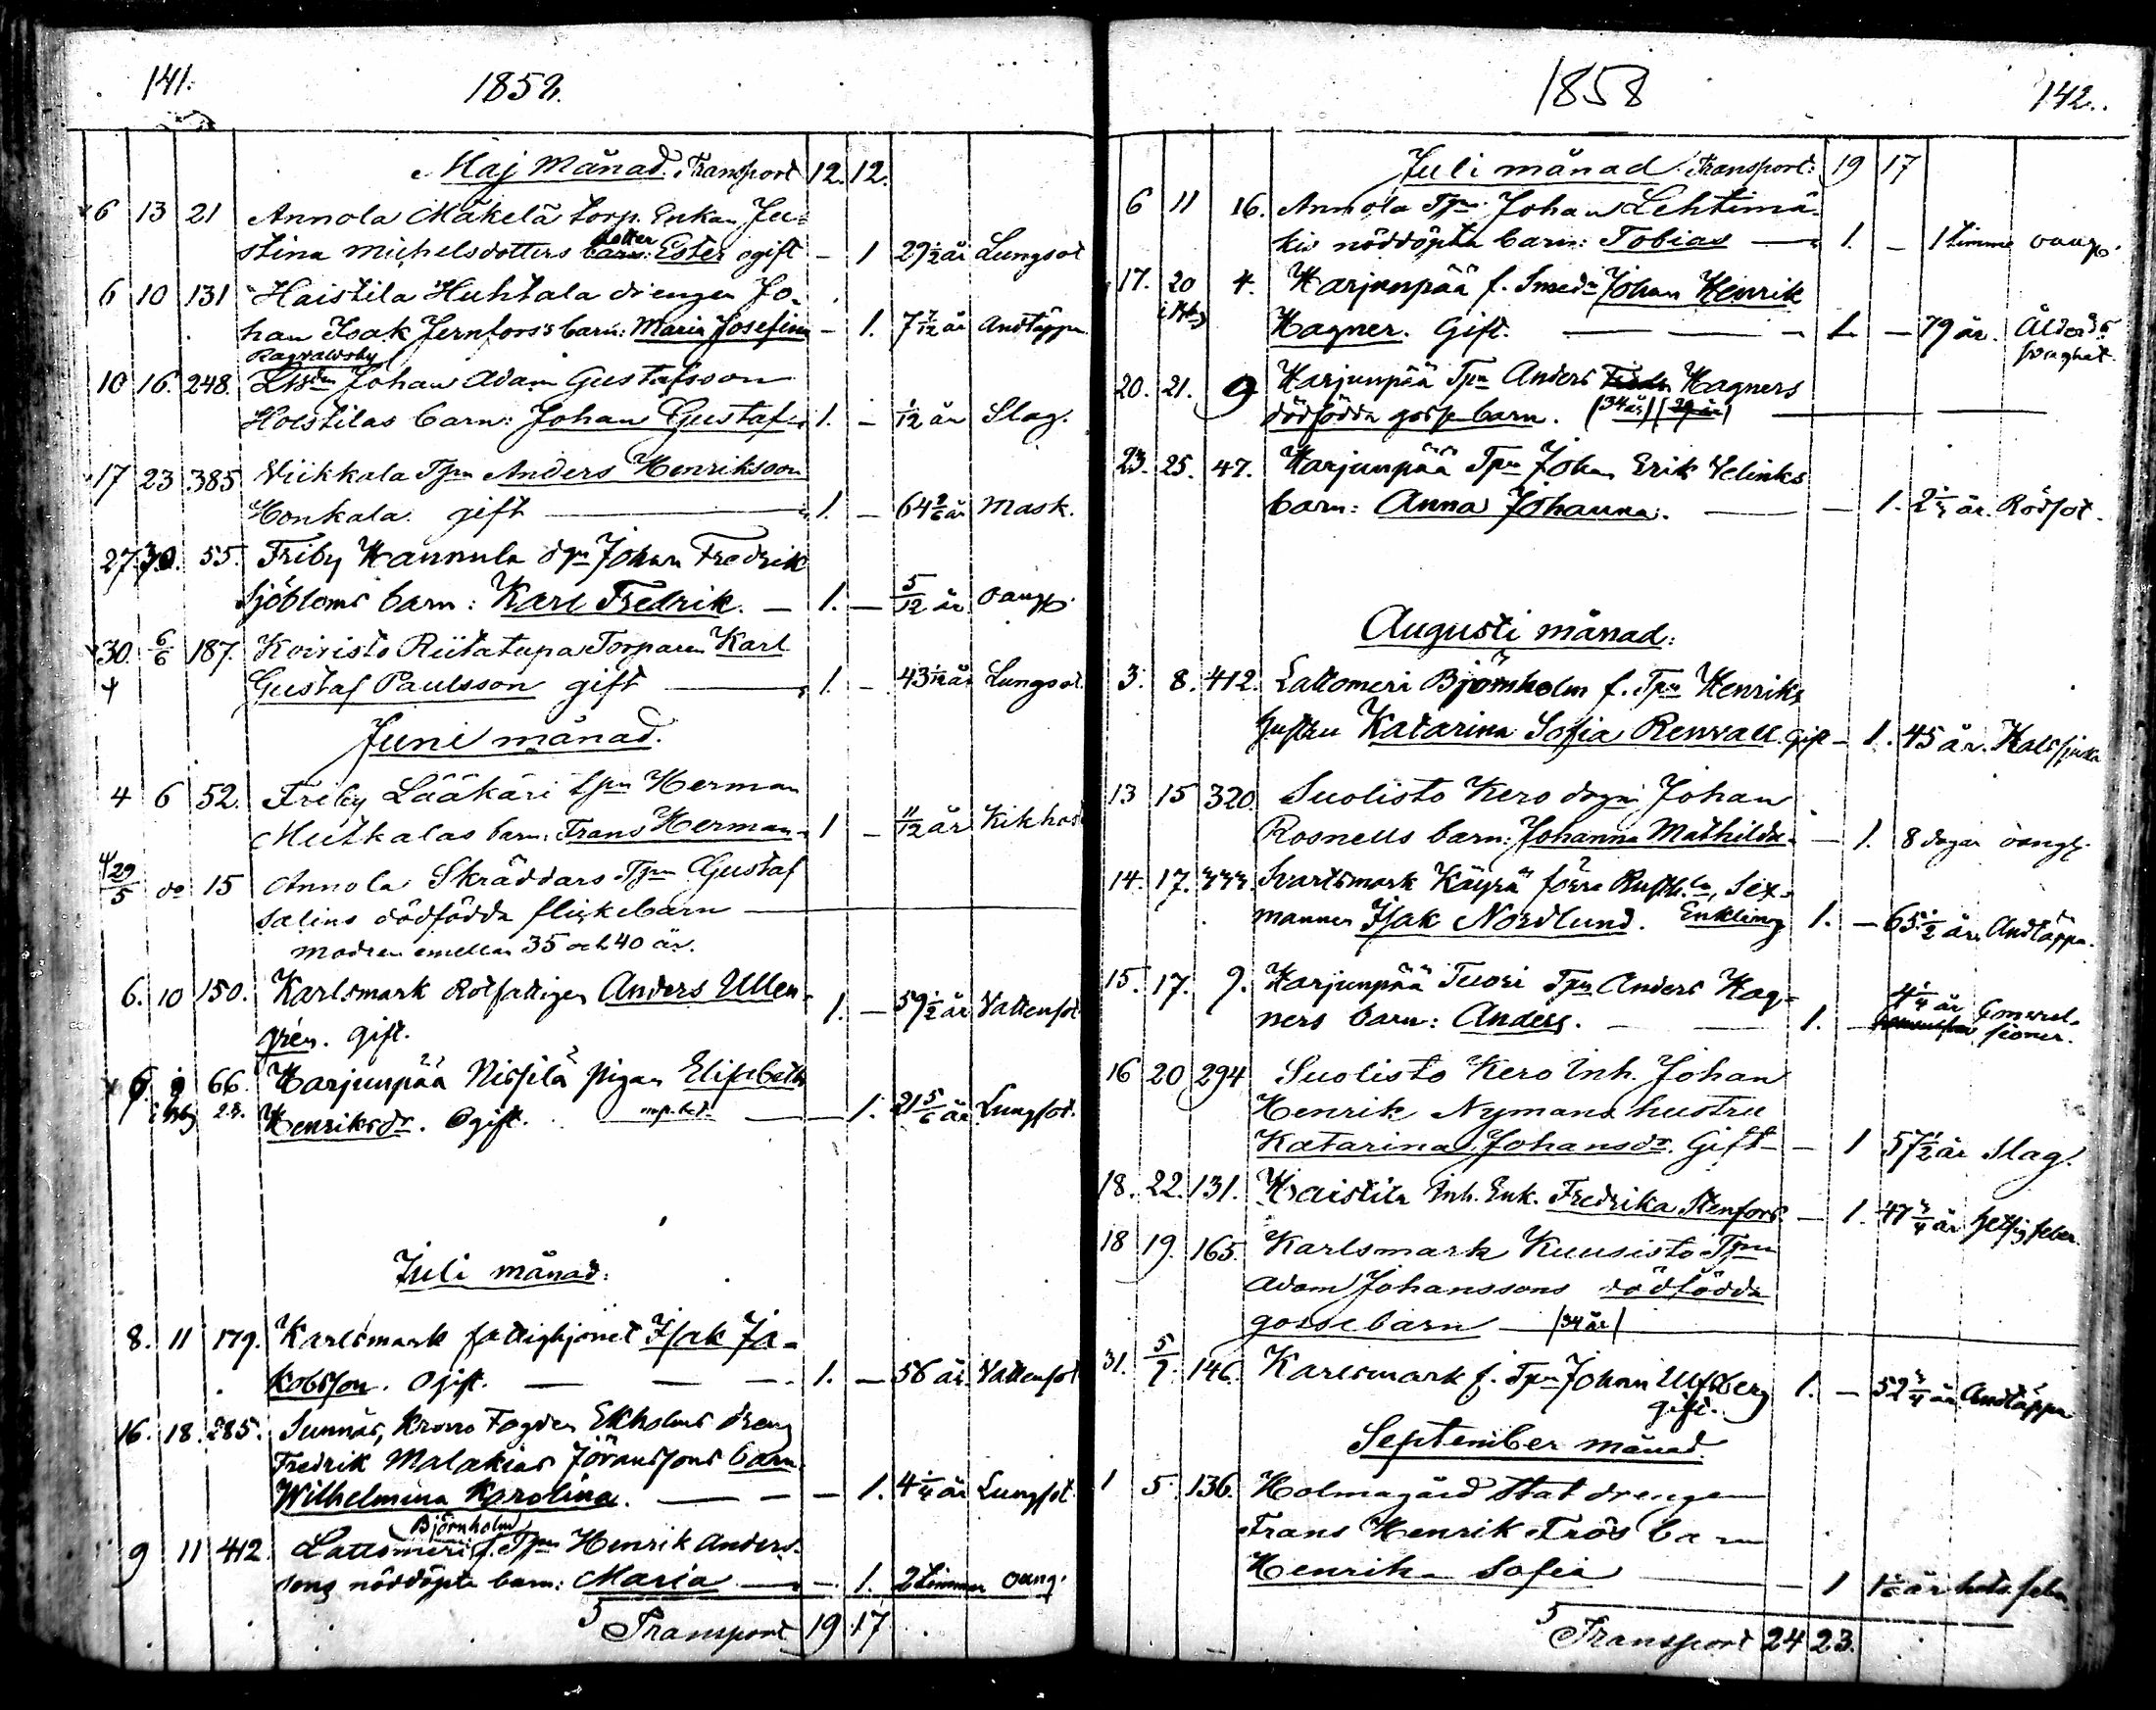 141.
1858.
Maj Månad. Transport 12. 12.
6 13 21 Annola Mäkelä torp. Enkan Ju-
stina Michelsdotters barn: dotter Ester ogift — 1 29 1/2 år Lungsot
6 10 131 Haistila Huhtala drengen Jo-
han Isak Jernfors's barn: Maria Josefina — 1. 7 7/12 år Andtäppa
Ragvaldsby
10 16. 248. Johan Adam Gustafsson
Holstilas barn: Johan Gustaf 1. — 1/12 år Slag.
17 23 385 Viikkala Tpn Anders Henriksson
Honkala. gift — 1. — 64 år Mask.
27. 30. 55. Friby Hannula Johan Fredrik
Sjöbloms barn: Karl Fredrik. — 1. — 5/12 år oangf.
30. 6/6 187. Koivisto Riitatupa Torparen Karl
Gustaf Paulsson gift — 1. — 43 år Lungsot.
Juni månad.
4 6 52. Friby Lääkäri tpn Herman
Mutkalas barn: Frans Herman 1 — 11/12 år Kikhost
29/5 do 15 Annola Skräddars Tpn Gustaf
Salins dödfödda flickebarn —
modren emellan 35 och 40 år.
6. 10 150. Karlsmark Rotfattigen Anders Ullen-
grén. gift. 1. — 59 1/2 år Vattensot
6 9 66. Harjunpää Nissilä pigan Elisabeth
Henriksdr. Ogift. — 1. 21 5/6 år Lungsot.
Juli månad:
8. 11 179. Karlsmark fattighjonet Isak Ja-
kobsson. Ogift. — 1. — 56 år. Vattensot
16. 18. 285. Sunnäs, Krono Fogden Ekholms dreng
Fredrik Malakias Jöranssons barn
Wilhelmina Karolina. — 1. 4 1/4 år Lungsot.
Björnholm
9 11 412. Lattomeri f. Tpn Henrik Anders-
sons nöddöpta barn: Maria — 1. 2 timmar oang.
Transport 19 17
1858
142.
Juli månad Transport: 19 17
6 11 16. Annola Tpn Johan Lehtimä-
kis nöddöpta barn: Tobias — 1. — 1 timme oangf.
17. 20 4. Harjunpää f. Smedn Johan Henrik
Hagner. Gift. — 1. — 79 år. Ålderds
svaghet.
20. 21. 9 Harjunpää Tpn Anders Hagners
dödfödda gossebarn. (34 år)
23. 25. 47. Harjunpää Tpn Johan Erik Velinks
barn: Anna Johanna. — 1. 2 år. Rödsot.
Augusti månad:
3. 8. 412. Lattomeri Björnholm f. Tpn Henriks
hustru Katarina Sofia Renvall. gift — 1. 45 år.
13 15 320. Suolisto Kero Johan
Rosnells barn: Johanna Mathilda — 1. 8 dagar oangf.
14. 17. Svartsmark Käyrä förra Sex-
mannen Isak Nordlund. Enkling 1. — 65 1/2 år. Andtäppa.
15. 17. 9. Harjunpää Tuori Tpn Anders Hag-
ners barn: Anders. — 1. — 4 1/4 år
16 20 294 Suolisto Kero Inh. Johan
Henrik Nymans hustru
Katarina Johansdr. Gift — 1 57 1/2 år Slag.
18. 22. 131. Haistila Inh. Enk. Fredrika Stenfors — 1. 47 3/4 år hetsig feber
18 19. 165. Karlsmark Kuusisto Tpn
Adam Johanssons dödfödda
gossebarn — (34 år)
31. 5/9. 146. Karlsmark f. Tpn Johan Ulfsberg 1. — 52 3/4 år Andtäppa
gift.
September månad
1 5. 136. Holmagård Stat drengen
Frans Henrik Frös barn
Henrika Sofia — 1 1 år
Transport 24 23.